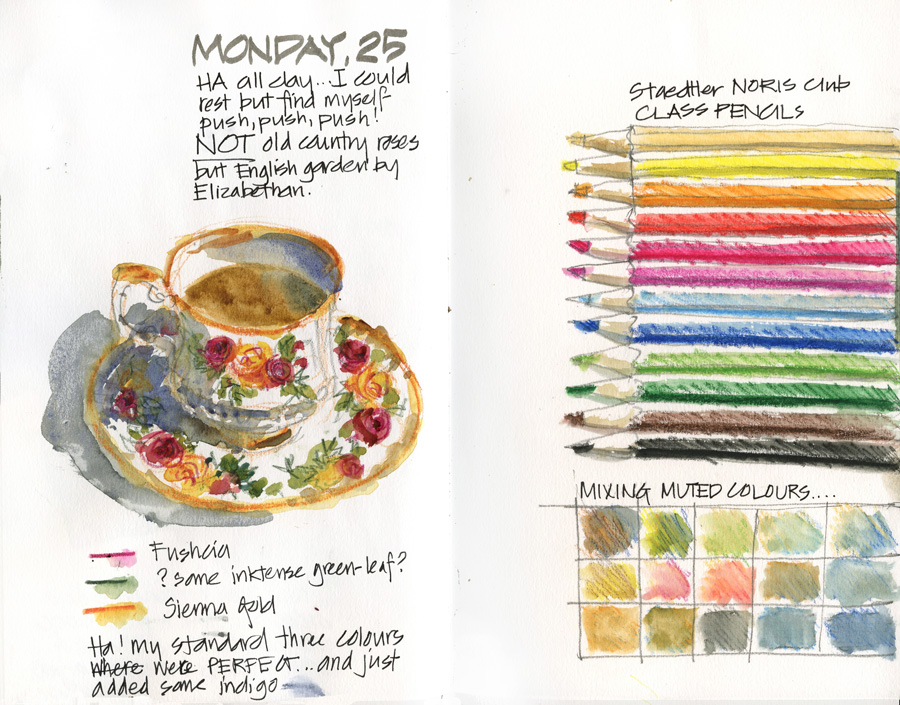 MONDAY, 25
HA all day...I could
rest but find myself
push, push, push!
NOT old country roses
but English garden by
Elizabethan.
Fushcia
? some inktense green-leaf?
Sienna Gold
Ha! my standard three colours
where were PERFECT...and just
added some indigo
Staedtler NORIS Club
CLASS PENCILS
MIXING MUTED COLOURS....